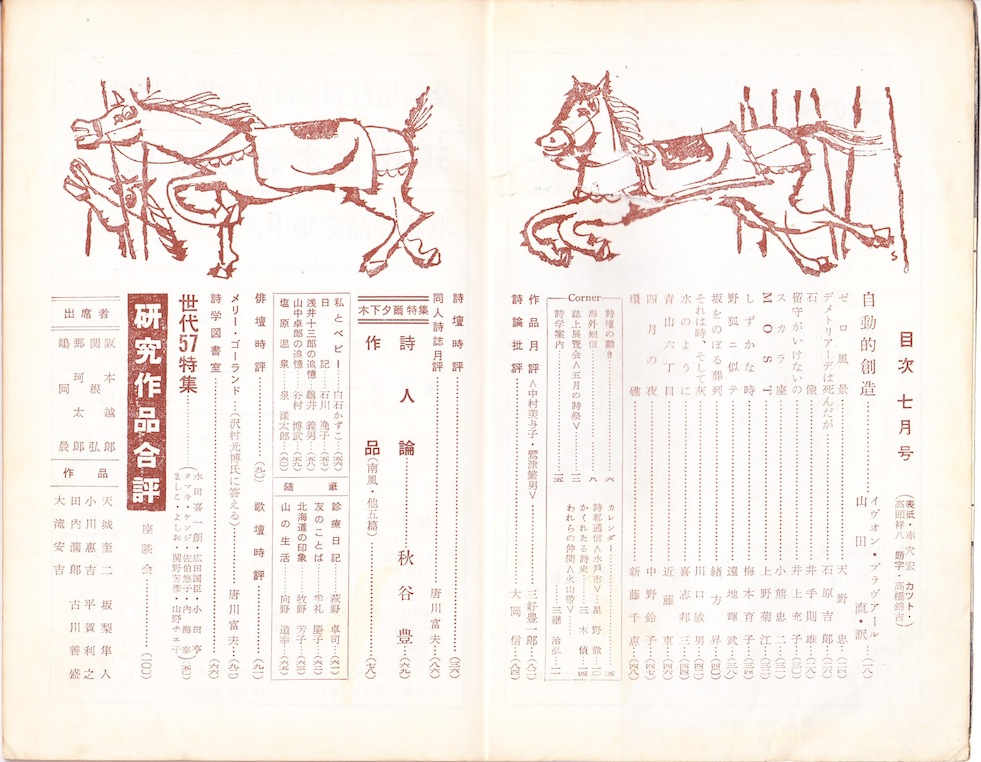 目次 七月号
(表紙・赤穴宏 カット・
高頭祥八 題字・高橋錦吉)
自動的創造
イヴォン・ブラヴァール
山田 直・訳…(一八)
ゼロ風景……天野 忠…
デメトリアーデは死んだが……石原吉郎…
石の像……井手則雄…
留守がいけないの……井上充子…
スカラ座……小熊忠二…
MOST……上野菊江…
しずかな時……梅本育子…
野狐ニ似テ……遠地輝武…(三八)
坂をのぼる葬列……緒方 昇…(四〇)
それは時、そして灰……川口敏男…
水のように……喜志邦三…
青山六丁目……近藤 東…
四月の夜……中野鈴子…(四七)
環礁……新藤千恵…(四八)
Corner
詩壇の動き……六
海外短信……八
誌上展覧会<五月の詩祭>……三
詩学案内……五
カレンダー……
詩都通信<水戸市>…星野 徹…一〇
かくれたる詩史……三木 偵…一四
われらの仲間<火山帯>……三継治弘…二
作品月評<中村美与子・鷲津繁男>……三好豊一郎…(八二)
詩論批評……大岡 信…(八四)
詩壇時評……(三六)
同人詩誌月評……唐川富夫…(八六)
木下夕爾特集
詩人論……秋谷 豊…(六九)
作品(南風・他五篇)……(七八)
私とベビー……白石かずこ…(五六)
日記……石川逸子…(五七)
浅井十三郎の追憶…亀井義男…(五八)
山中卓郎の追憶…谷村博武…(五九)
塩原温泉……泉 漾太郎…(六〇)
随筆
診療日記……萩野卓司…(六一)
友のことば……牟礼慶子…(六二)
北海道の印象……牧野芳子…
山の生活……向野道幸…(六五)
俳壇時評……(九〇)
歌壇時評……(九一)
メリー・ゴーランド…(沢村光博氏に答える)……唐川富夫…(九二)
詩学図書室……(六六)
世代57特集
水田喜一朗・広田国臣・小田 亨
タマキ・ケンジ・佐伯悠子・内海 泰
ましこ・よしお・関野芳彦・山野チエ子
研究作品合評
座談会……(一〇〇)
出席者
阪本越郎
関根弘
那珂太郎
嶋岡晨
作品
天城奎二
小川惠吉
田内満郎
大滝安吉
坂梨隼人
平賀利之
古川善盛